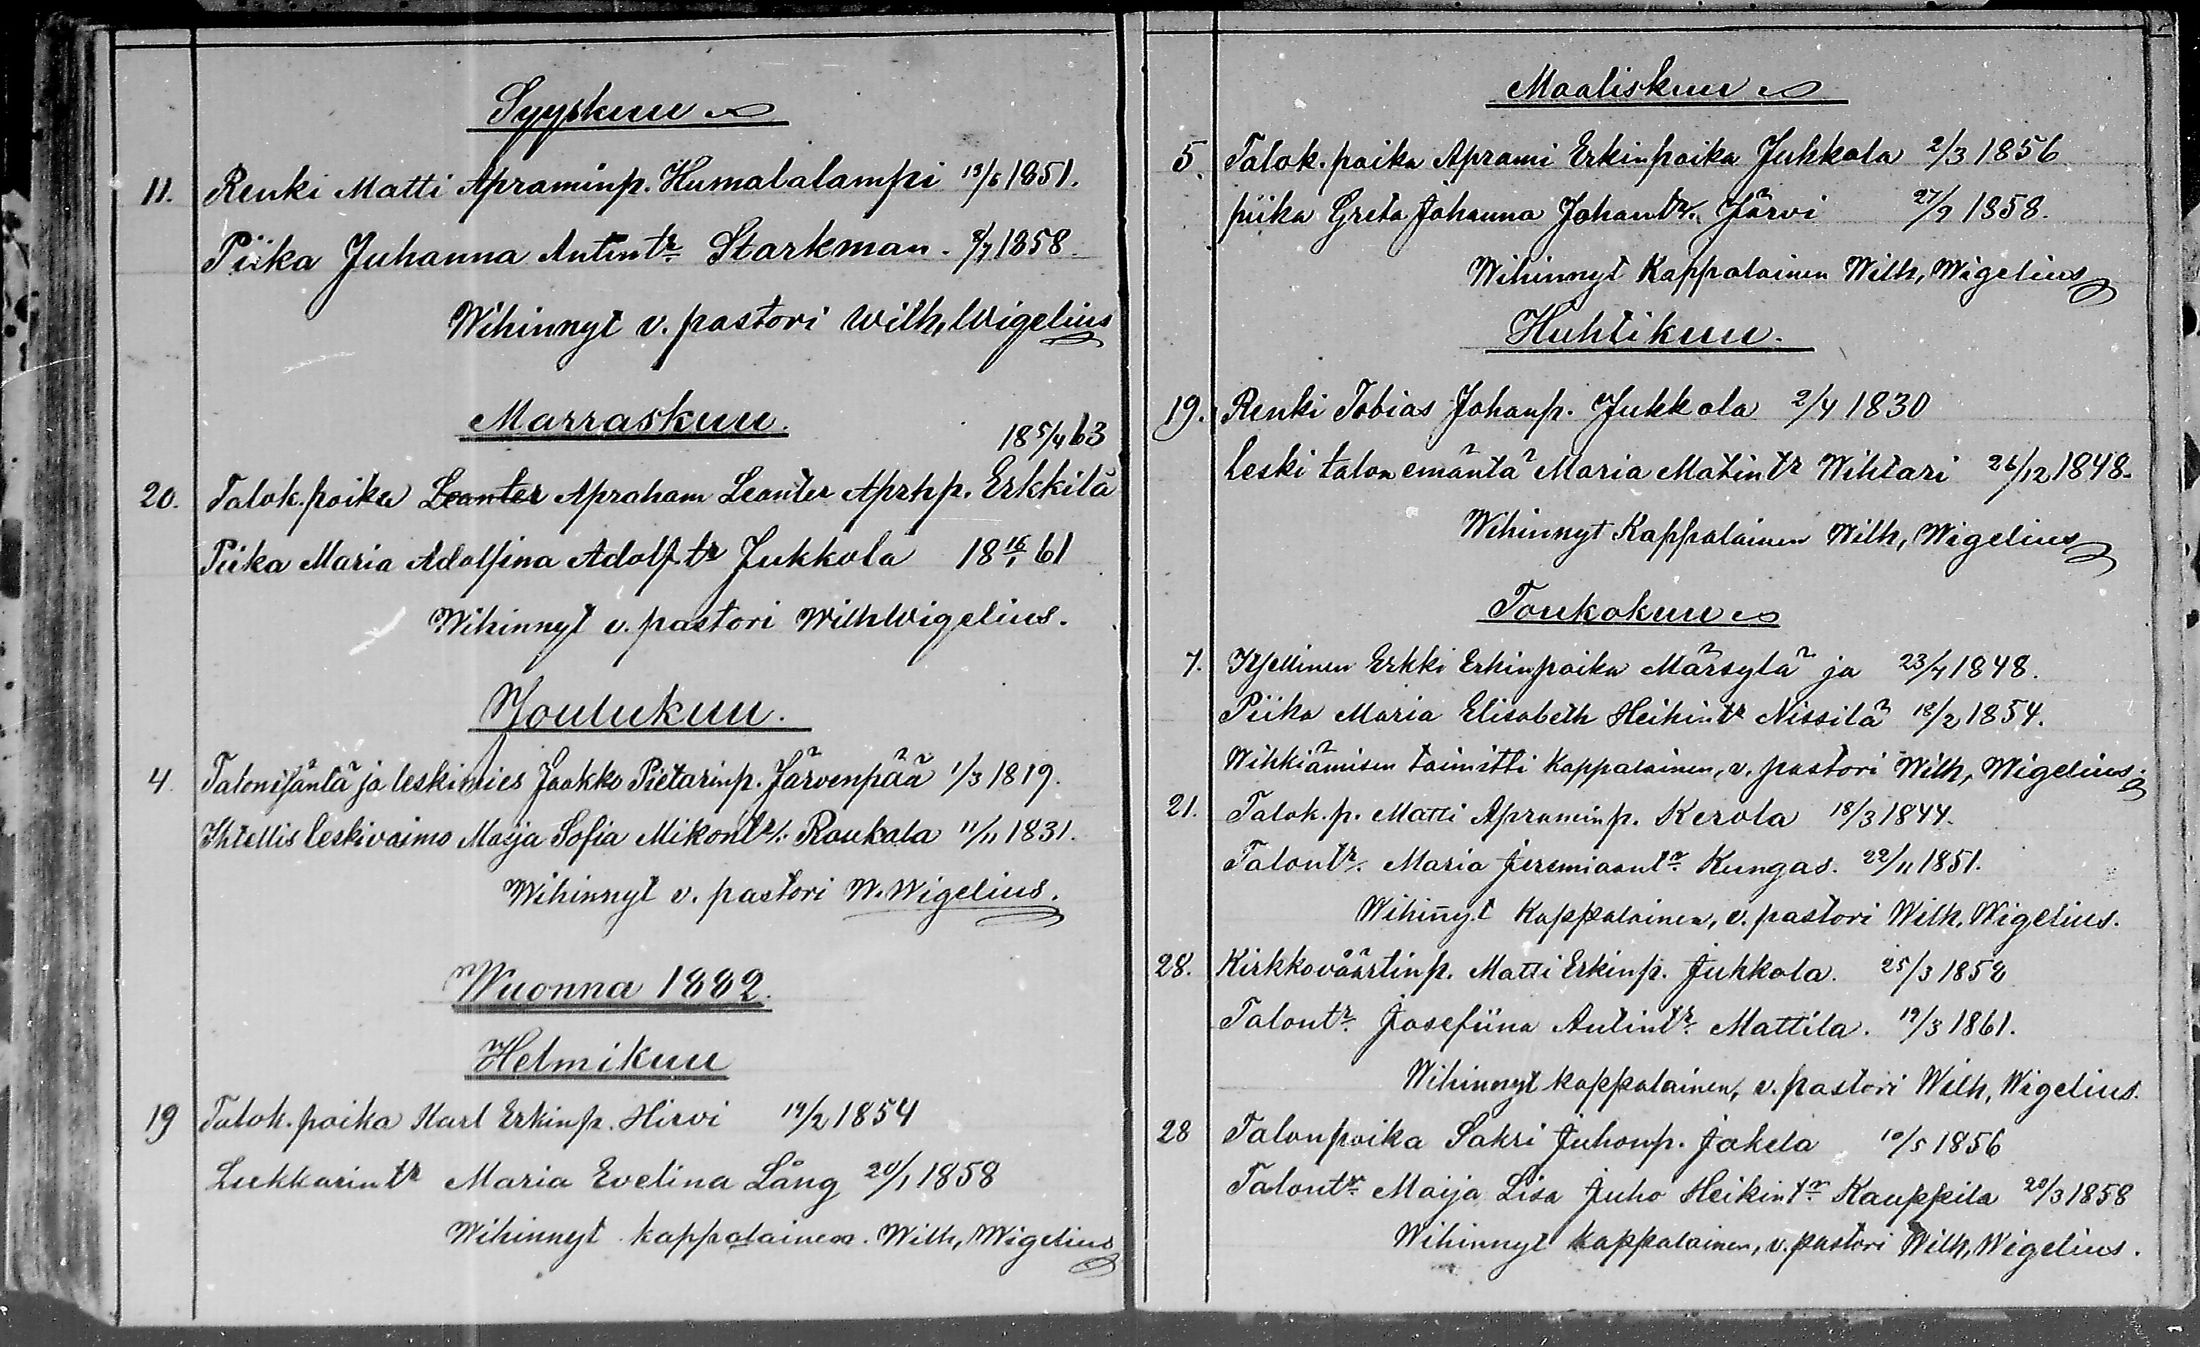 Syyskuu
11. Renki Matti Apraminp. Humalalampi 13/6 1851.
Piika Juhanna Antintr Starkman. 8/7 1858
Wihinnyt v. pastori Wilh, Wigelius
Marraskuu.
18 5/4 63
20. Talok. poika Leanter Apraham Leanter Aprhp. Erkkilä
Piika Maria Adolfina Adolf tr Jukkola 18 16/1 61
Wihinnyt v. pastori Wilh Wigelius.
Joulukuu.
4. Talonisäntä ja leskimies Jaakko Pietarinp. Järvenpää 1/3 1819.
Ithellis leskivaimo Maija Sofia Mikontr/. Raukala 11/11 1831.
Wihinnyt v. pastori W. Wigelius.
Wuonna 1882.
Helmikuu
19 Talok. poika Karl Erkinp. Hirvi 19/2 1854
Lukkarin tr Maria Evelina Lång 20/1 1858
Wihinnyt kappalainen. Wilh, Wigelius
Maaliskuu
5. Talok. poika Aprami Erkinpoika Jukkola 2/3 1856
piika Greta Johanna Johantr/. Järvi 27/9 1858.
Wihinnyt Kappalainen Wilh, Wigelius
Huhtikuu.
19. Renki Tobias Johanp. Jukkola 2/4 1830
leski talon emäntä Maria Matintr Wihtari 26/12 1848.
Wihinnyt Kappalainen Wilh, Wigelius
Toukokuu
7. Itsellinen Erkki Erkinpoika Märsylä ja 23/4 1848.
Piika Maria Elisabeth Heikintr Nissilä 18/2 1854.
Wihkiämisen toimitti kappalainen, v. pastori Wilh, Wigelius.
21. Talok. p. Matti Apraminp. Kerola 18/3 1844.
Talontr. Maria Jeremiaantr. Kungas. 22/11 1851.
Wihin̄yt Kappalainen, v. pastori Wilh, Wigelius.
28. Kirkkovåärtinp. Matti Erkinp. Jukkola. 25/3 1858
Talontr. Josefiina Antintr. Mattila. 19/3 1861.
Wihinnyt kappalainen, v. pastori Wilh, Wigelius.
28 Talonpoika Sakri Juhonp. Jakela 10/5 1856
Talontr. Maija Lisa Juho Heikintr. Kauppila 20/3 1858
Wihinnyt kappalainen, v. pastori Wilh, Wigelius.